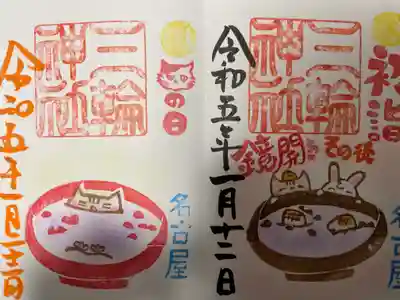 三輪神社
鏡開
その後
令和五年一月十二日
名古屋
三輪神社
の日
名古屋
令和五年一月